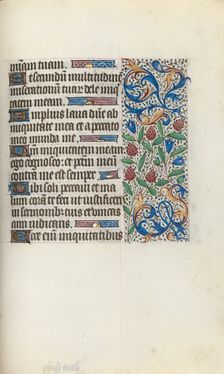 m̄am tuam.
Et secundum multitudinē
miserationū tuar: dele iniqui
tatem meam.
Amplius laua me ab
iniquitate mea et a peccato
meo munda me.
ego cognosco: et peccatū meū
contra me est semper
Tibi soli peccaui et ma
lum corā te feci ut iustificeris
in sermonib: tuis et vincas
cum iudicaris.
Ecce enim iniquitatibus